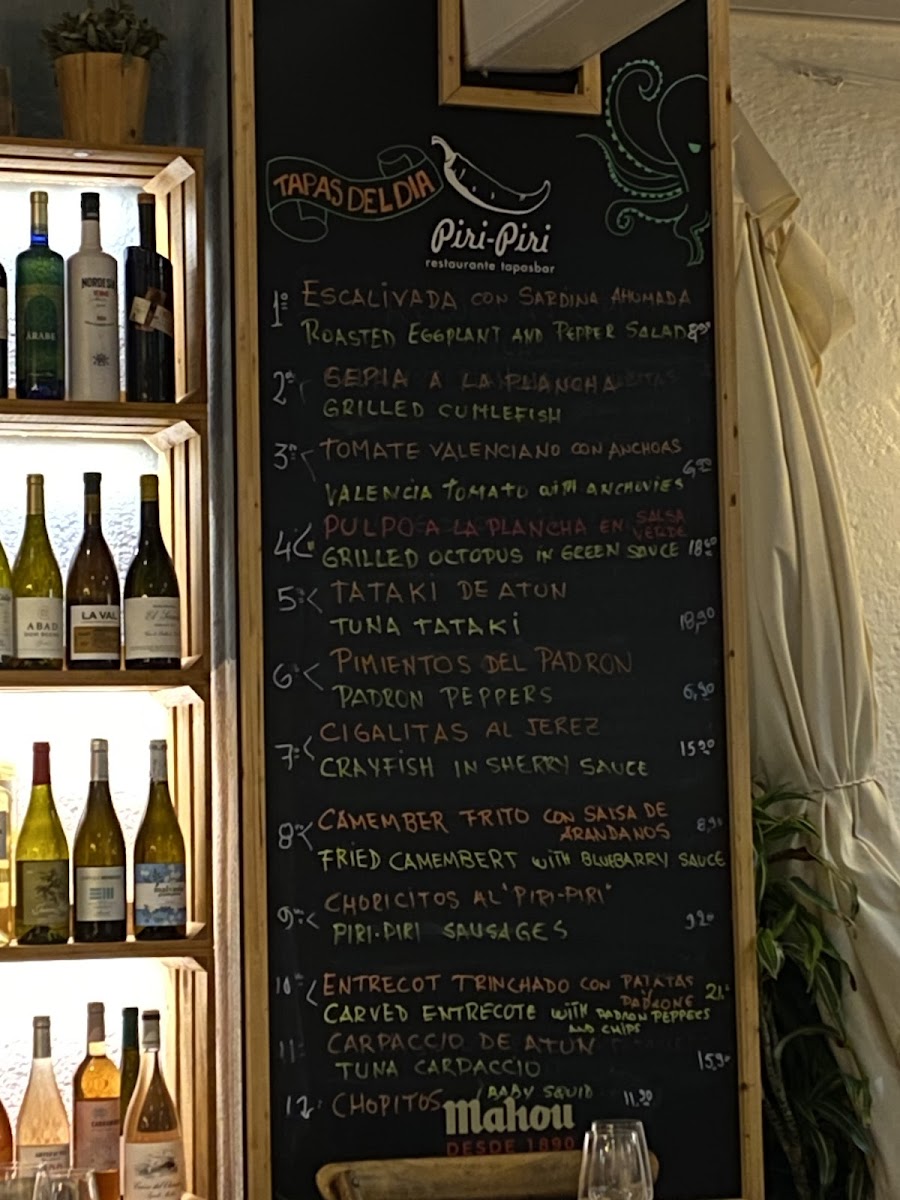 TAPAS DEL DIA
Piri-Piri
restaurante tapasbar
1º ESCALIVADA CON SARDINA AHUMADA
ROASTED EGGPLANT AND PEPPER SALAD
2º SEPIA A LA PLANCHA
GRILLED CUMLEFISH
3º TOMATE VALENCIANO CON ANCHOAS
VALENCIA TOMATO WITH ANCHOVIES
4º PULPO A LA PLANCHA EN SALSA VERDE
GRILLED OCTOPUS IN GREEN SAUCE
5º TATAKI DE ATUN
TUNA TATAKI 18,90
6º PIMIENTOS DEL PADRON
PADRON PEPPERS 6,90
7º CIGALITAS AL JEREZ 15.90
CRAYFISH IN SHERRY SAUCE
8º CAMEMBER FRITO CON SALSA DE
ARANDANOS 8,90
FRIED CAMEMBERT WITH BLUEBARRY SAUCE
9º CHORICITOS AL "PIRI-PIRI"
PIRI-PIRI SAUSAGES
10º ENTRECOT TRINCHADO CON PATATAS
Y PADRONE 21.
CARVED ENTRECOTE WITH PADRON PEPPERS
AND CHIPS
11 CARPACCIO DE ATUN
TUNA CARPACCIO 15,90
12 CHOPITOS / BABY SQUID 11,90
Mahou
DESDE 1890
ARABE
NORDESIA
ABAD
LA VAL